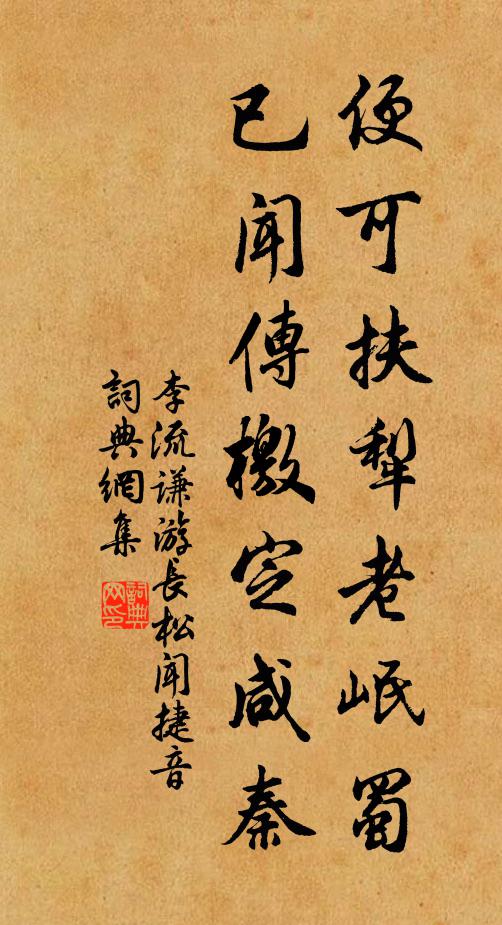 便可扶犁老岷蜀
已聞傳檄定咸秦
李流謙游長松聞捷音
詞典網集
詞典
网印